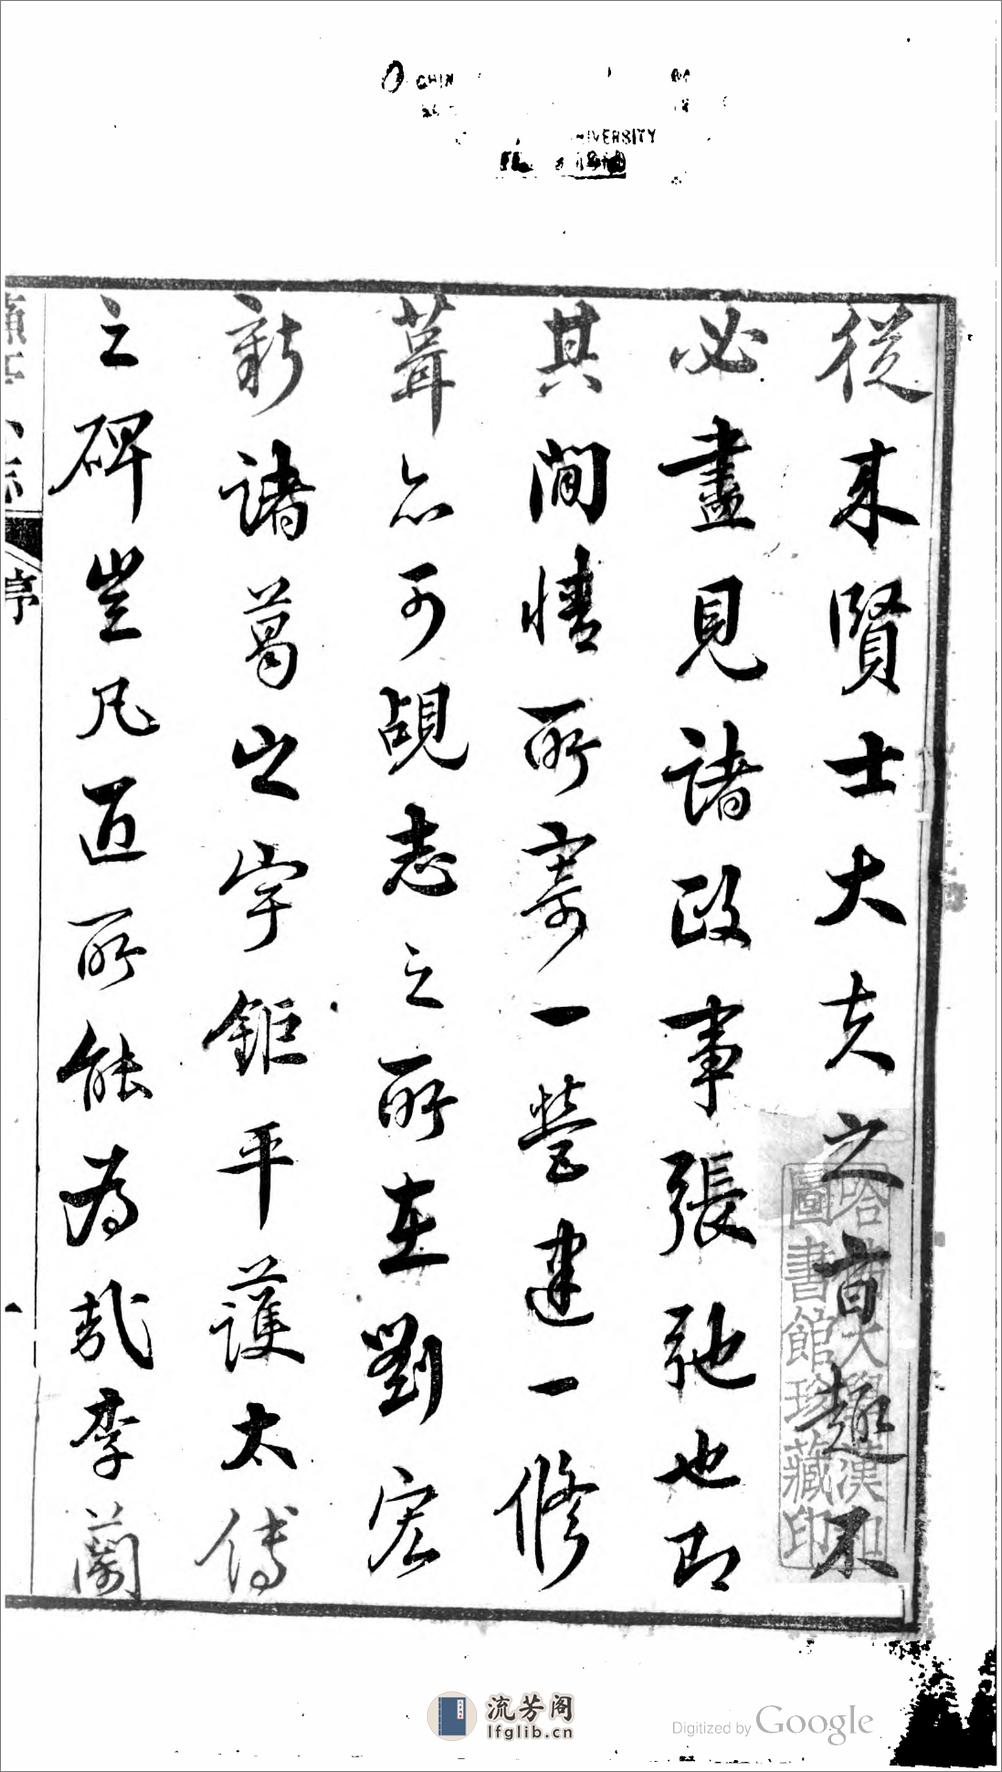 從来賢士大夫之旨趣不
必盡見諸政事張弛也即
其閒情所寄一營建一修
葺亦可覘志之所在劉宏
新諸葛之宇鉅平護太傅
之碑豈凡近所能為哉李蘭
序
哈佛大學漢和
圖書館珍藏印
UNIVERSITY
流芳阁
lfglib.cn
Digitized by Google